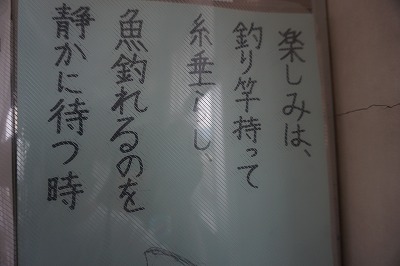 楽しみは、
釣り竿持って
糸垂らし、
魚釣れるのを
静かに待つ時